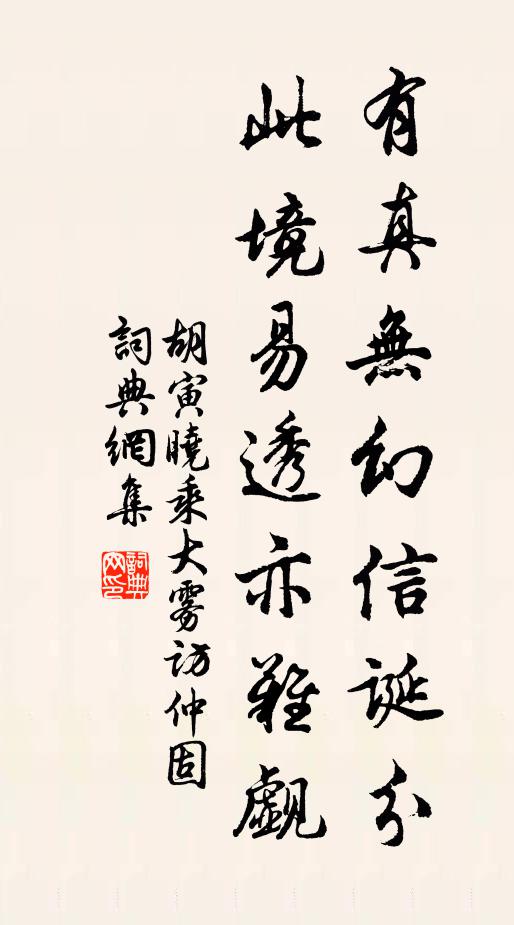 有真無幻信誕分
此境易透亦難覷
胡寅曉乘大霧訪仲固
詞典網集
詞典網印